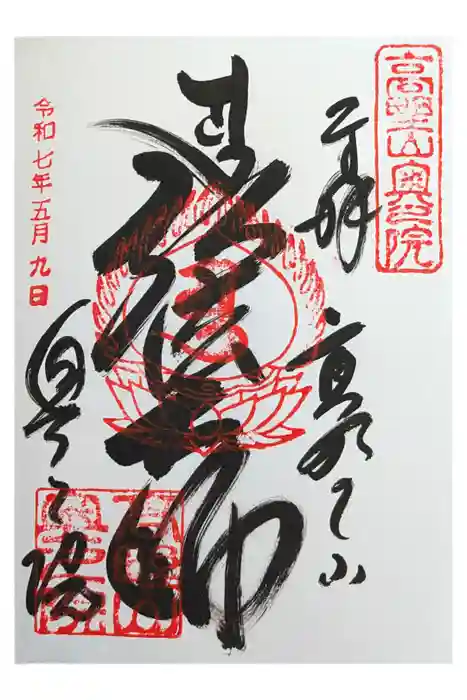 高野山奥之院
奉拝
高野山
弘法大師
奥之院
令和七年五月九日